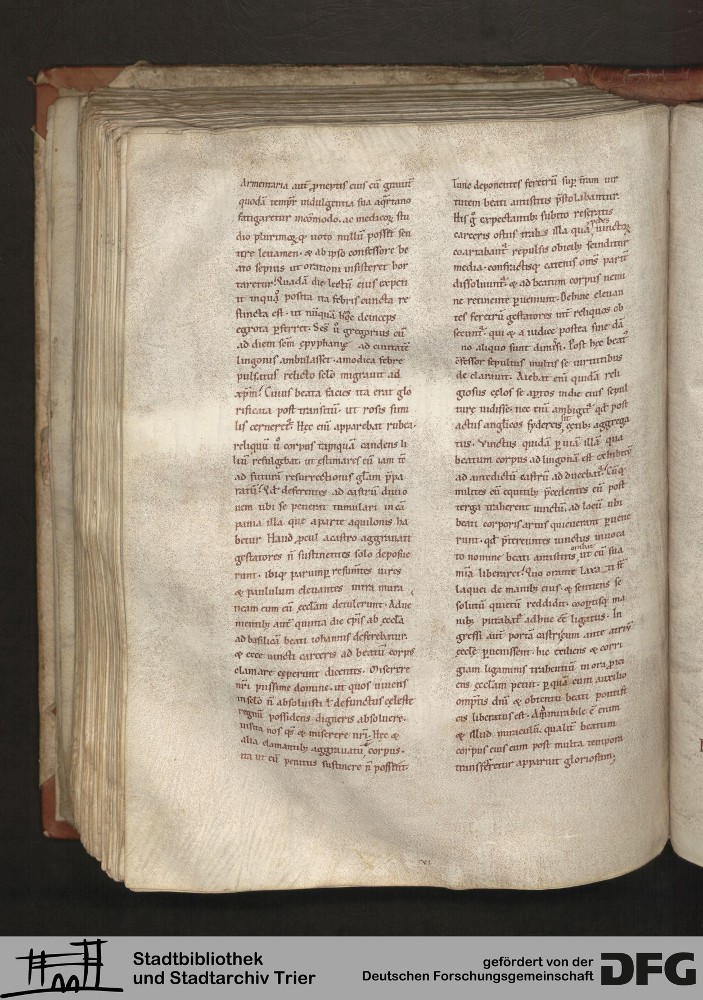 Armentaria aut̄ ꝓneptis eius cū grauit̄
quodā tempr̄ indulgentia sua aġrtano
fatigaretur incōmodo. ac medicoꝝ stu
dio plurimoꝝ ꝙ uoto nullū posset sen
tire leuamen. & ab ipso confessore be
ato sepius ut orationi insisteret hor
taretur. Quadā die lectū eius expeti
it inquo posita ita febris cuncta re
stincta est. ut nūquā hęc deinceps
egrota ꝑferret. Scs̄ ũ gregorius cū
ad diem scm̄ epyphanię ad ciuitatē
lingonis ambulasset. amodica febre
pulsatus relicto sclo migrauit ad
xp̄m. Cuius beata facies ita erat glo
rificata post transitū. ut rosis simi
lis cerneret᷑. Hęc enī apparebat rubea.
reliquū ũ corpus tamquā candens li
liū refulgebat. ut estimares eū iam tc̄
ad futurā resurrectionis gl̄am p̄pa
ratū. Qđ deferentes ad castrū diuio
nem ubi se peneret tumulari in cā
pania illa que aparte aquilonis ha
betur Haud ꝓcul acastro aggrauati
gestatores n̄ sustinentes solo deposue
runt. ibiq; parump̄ resum̄tes uires
& paululum eleuantes intra mura
neam eum eū ęcclam detulerunt. Adue
nientib; aut̄ quinta die ep̄is ab ęccla
ad basilicā beati iohannis deferebatur.
& ecce uincti carceris ad beatū corps
clamare cęperunt dicentes. Miserere
nr̄i piissime domine. ut quos uiuens
insclo n̄ absoluisti ł defunctus celeste
regnū possidens digneris absoluere.
uisita nos qs̄ & miserere nr̄i. Hęc &
alia clamantib; aggrauatū ē corpus.
ita ut eū penitus sustinere n̄ possent.
Tunc deponentes feretrū sup̄ tram uir
tutem beati antistitis p̄stolabantur.
His ġ expectantib; subito reseratis
carceris ostiis trabes illa qua pedes uinctoꝝ
coartabant᷑ repulsis obicib; scinditur
media. confractisq; catenis oms̄ parit̄
dissoluunt᷑. & ad beatum corpus nemi
ne retinente ꝑueniunt. Dehinc eleuan
tes feretrū gestatores int̄ reliquos ob
secunt᷑. qui & a iudice postea sine dā
no aliquo sunt dimissi. Post hęc beat᷑
cfessor sepultus multis se uirtutibus
de clarauit. Aiebat enī quidā reli
giosus cęlos se aptos indie eius sepul
turę uidisse. nec enī ambigit᷑ qđ post
actus anglicos sydereis sit cętib; aggrega
tus. Vinctus quidā p̄ uiā illā qua
beatum corpus ad lingonā est exhibitū
ad antedictū castrū ad ducebat᷑. Cūq;
milites cū equitib; p̄cedentes eū post
terga traherent uinctū. ad locū ubi
beati corporis artus quieuerant ꝑuene
runt. qđ p̄tereuntes uinctus inuoca
to nomine beati antistitis orabat ut eū sua
mīa liberaret. Quo orante laxati st̄
laquei de manib; eius. & sentiens se
solutū quietū reddidit. coopertisq; ma
nib; putabat᷑ adhuc ee̅ ligatus. In
gressi aut̄ portā castrięum ante atriū
ęcclę ꝑuenissent. hic exiliens & corri
giam ligaminis trahentiū in ora ꝓici
ens ęcclam petiit. ꝑ quā eum auxilio
omp̄tis dn̄i & obtentu beati pontifi
cis liberatus est. Ammirabile ē enim
& illud miraculū. qualit̄ beatum
corpus eius cum post multa tempora
transferretur apparuit gloriosum;
VI
Stadtbibliothek
und Stadtarchiv Trier
gefördert von der
Deutschen Forschungsgemeinschaft
DFG